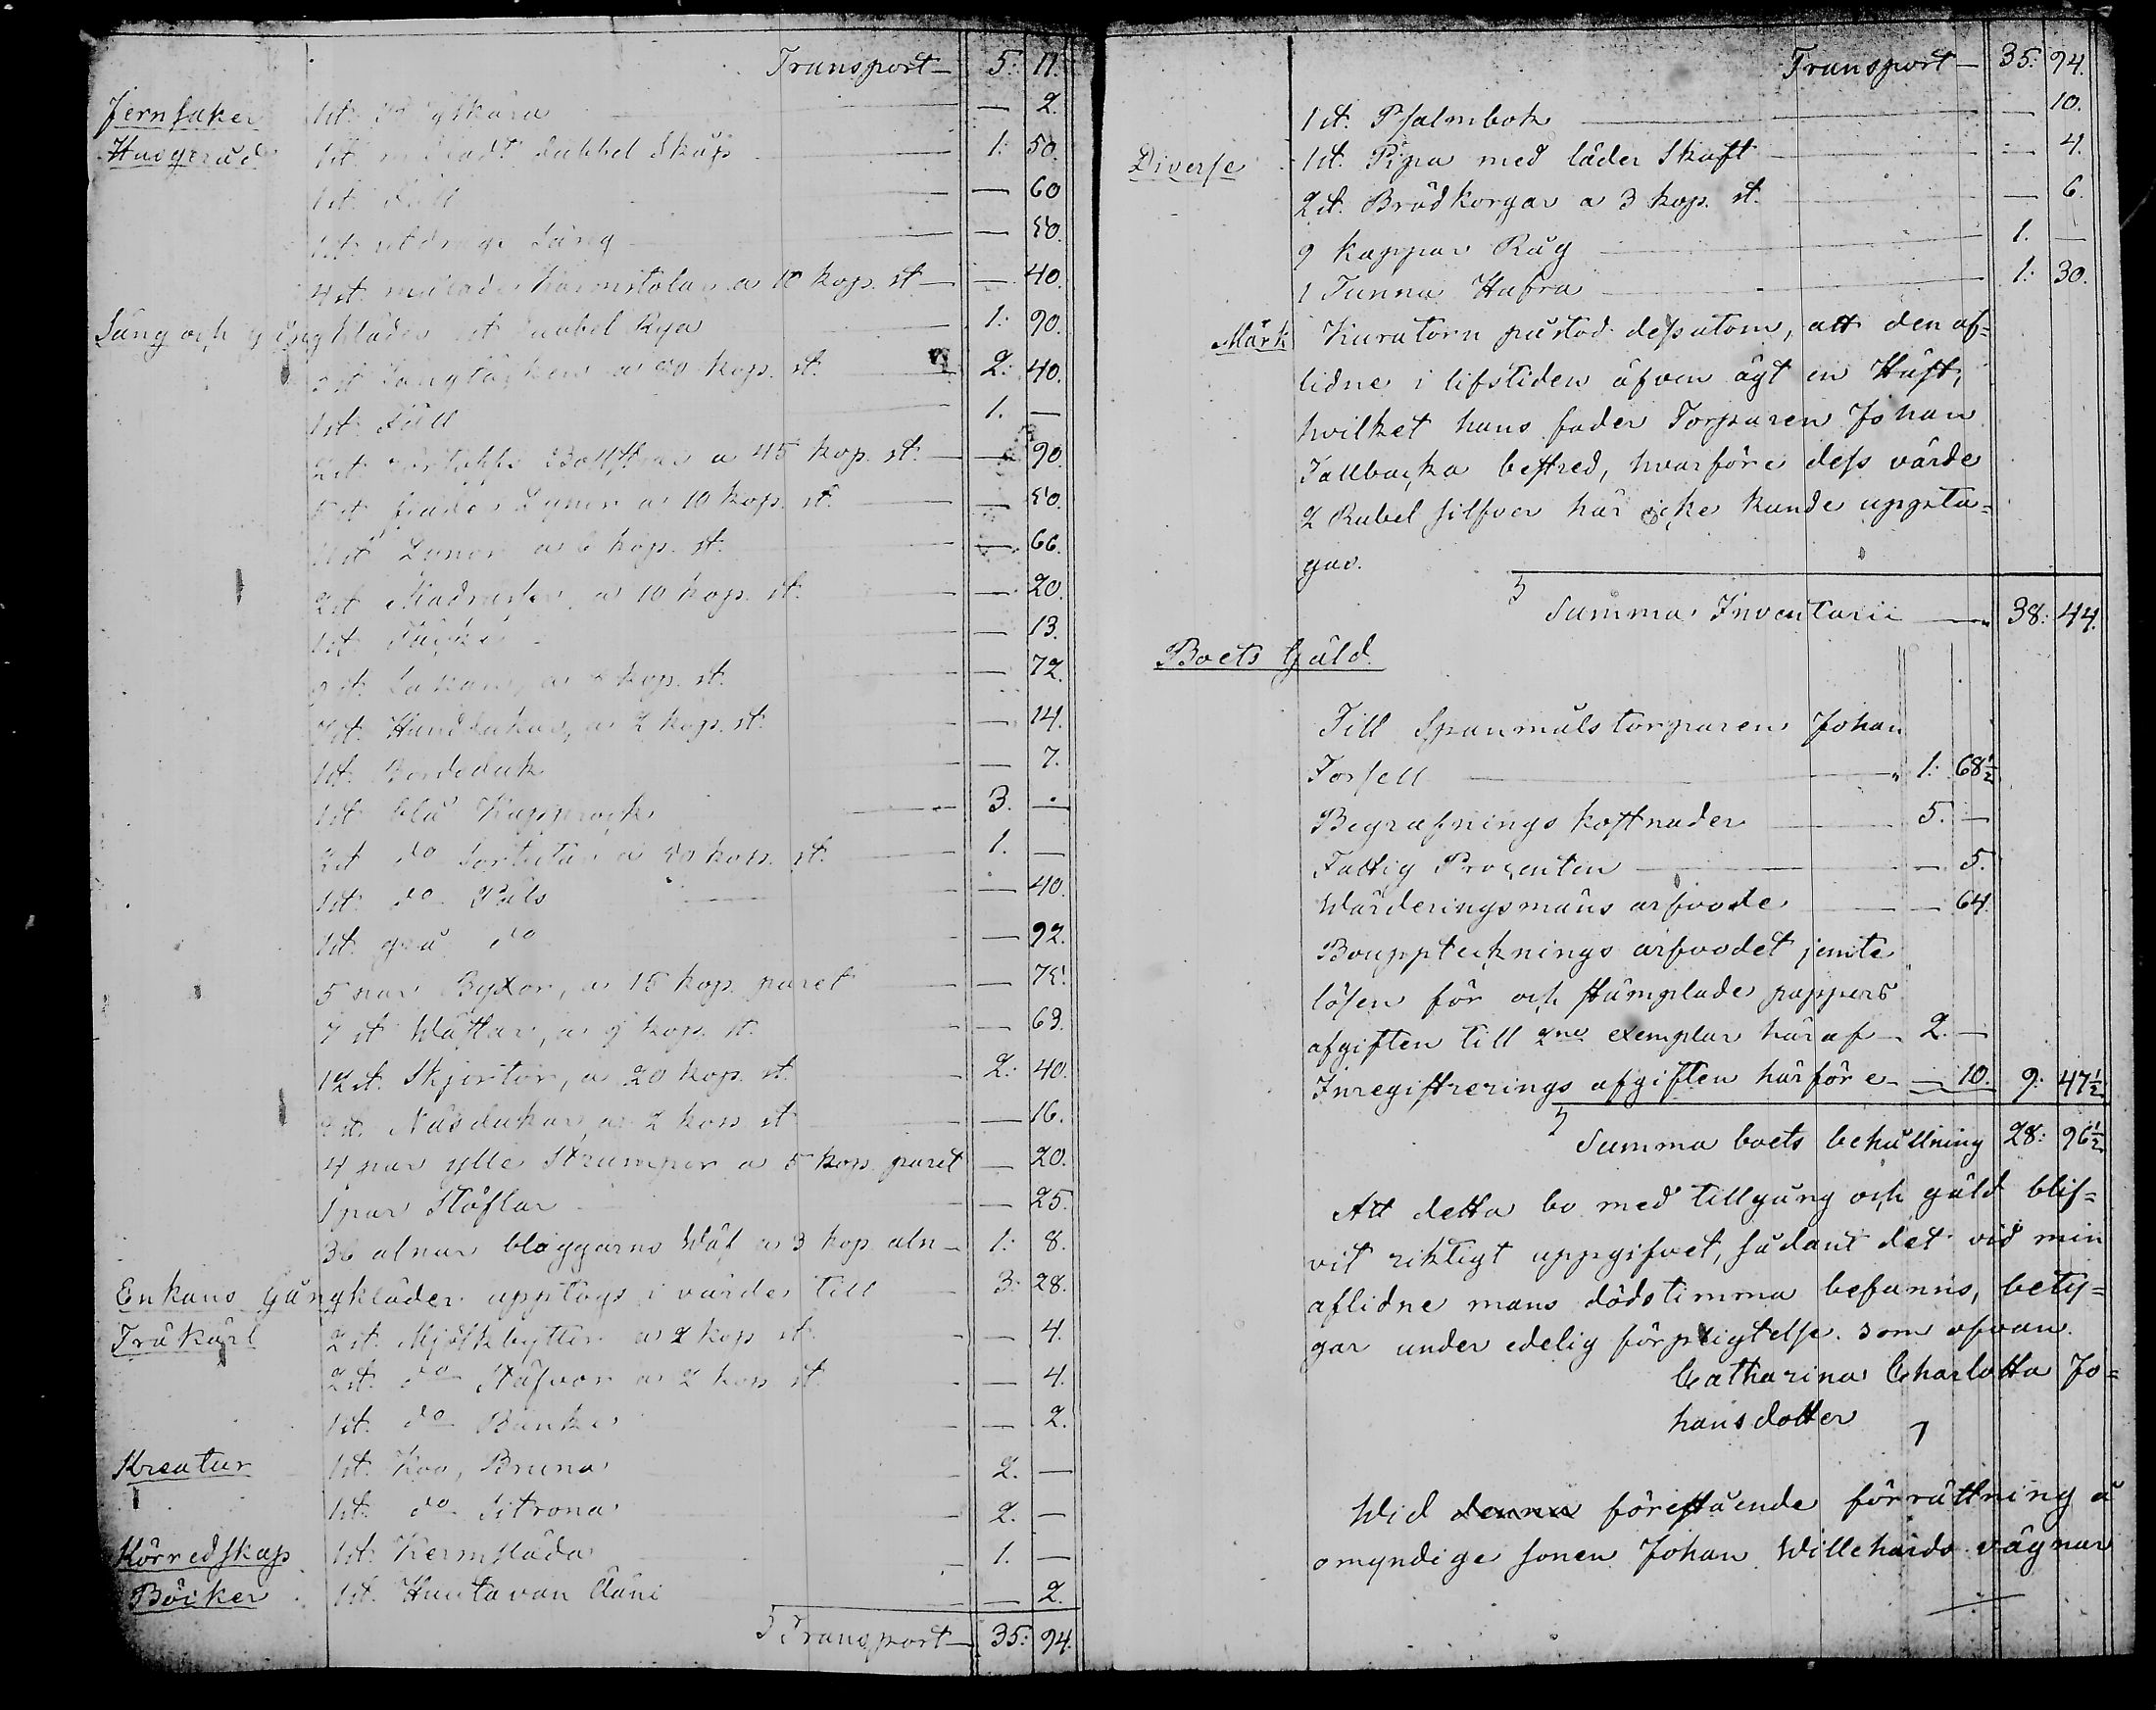 Transport — 5: 11.
Jernsaker 1 st. — 2.
Husgeråd 1 st. dubbel Skåp 1: 50.
1 st. — 60
1 st. utdrags Säng — 50.
4 st. målade Karmstolar a 10 kop. st — 40.
Säng och gångkläder 1 st. dubbel Rya 1: 90.
3 st. Sängtäcken a 80 kop. st. 2: 40.
1 st. Fäll 1. —
2 st. Bolstrar a 45 kop. st. — 90.
5 st. fjäder Dynor a 10 kop. st. — 50.
11 st. Dynor a 6 kop. st. — 66.
2 st. Madrasser, a 10 kop. st. — 20.
1 st. Täcke — 13.
9 st. Lakan, a 8 kop. st. — 72.
7 st. Handdukar, a 2 kop. st. — 14.
1 st. Bordsduk — 7.
1 st. blå Kapprock 3. —
2 st. do Sortutar a 50 kop. st. 1. —
1 st. do Päls — 40.
1 st. grå do — 92.
5 par Byxor, a 15 kop. paret — 75.
7 st Wästar, a 9 kop. st. — 63.
12 st. Skjortor, a 20 kop. st. 2: 40.
8 st. Näsdukar, a 2 kop st — 16.
4 par ylle Strumpor a 5 kop. paret — 20.
1 par Stöflar — 25.
36 alnar blaggarns Wäf a 3 kop. aln — 1: 8.
Enkans Gångkläder upptogs i värde till 3: 28.
Träkärl 2 st. Mjölkbyttor a 2 kop st. — 4.
2 st. do Stäfvor a 2 kop st. — 4.
1 st. do Bunke — 2.
Kreatur 1 st. Koo, Bruna 2. —
1 st. do Sitrona 2. —
Körredskap 1 st. Kermsläda 1. —
Böcker 1 st. Huutavan Ääni — 2.
Transport — 35: 94.
Transport — 35: 94.
1 st. Psalmbok — 10.
Diverse 1 st. Pipa med läder Skaft — 4.
2 st. Brödkorgar a 3 kop. st. — 6.
9 Kappar Råg 1. —
1 Tunna Hafra 1: 30.
Märk Kuratorn påstod dessutom, att den af=
lidne i lifstiden äfven ägt en Häst,
hvilket hans fader Torparen Johan
Tallbacka bestred, hvarföre dess värde
2 Rubel silfver här icke kunde uppta=
gas.
Summa Inventarii — 38: 44.
Boets Gäld.
Till Spanmålstorparen Johan
Forsell 1: 68½
Begrafnings kostnader 5. —
Fattig Procenten — 5.
Wärderingsmäns arfvode — 64.
Bouppteknings arfvodet jemte
lösen för och stämplade pappers
afgiften till 2ne exemplar häraf — 2. —
Inregistrerings afgiften härföre — 10. 9: 47½
Summa boets behållning 28: 96½
Att detta bo med tillgång och gäld blif=
vit riktigt uppgifvet, sådant det vid min
aflidne mans dödstimma befanns, bety=
gar under edelig förpligtelse. som ofvan.
Catharina Charlotta Jo=
hansdotter
Wid denna föreståeende förrättning å
omyndige sonen Johan Willehards vägnar